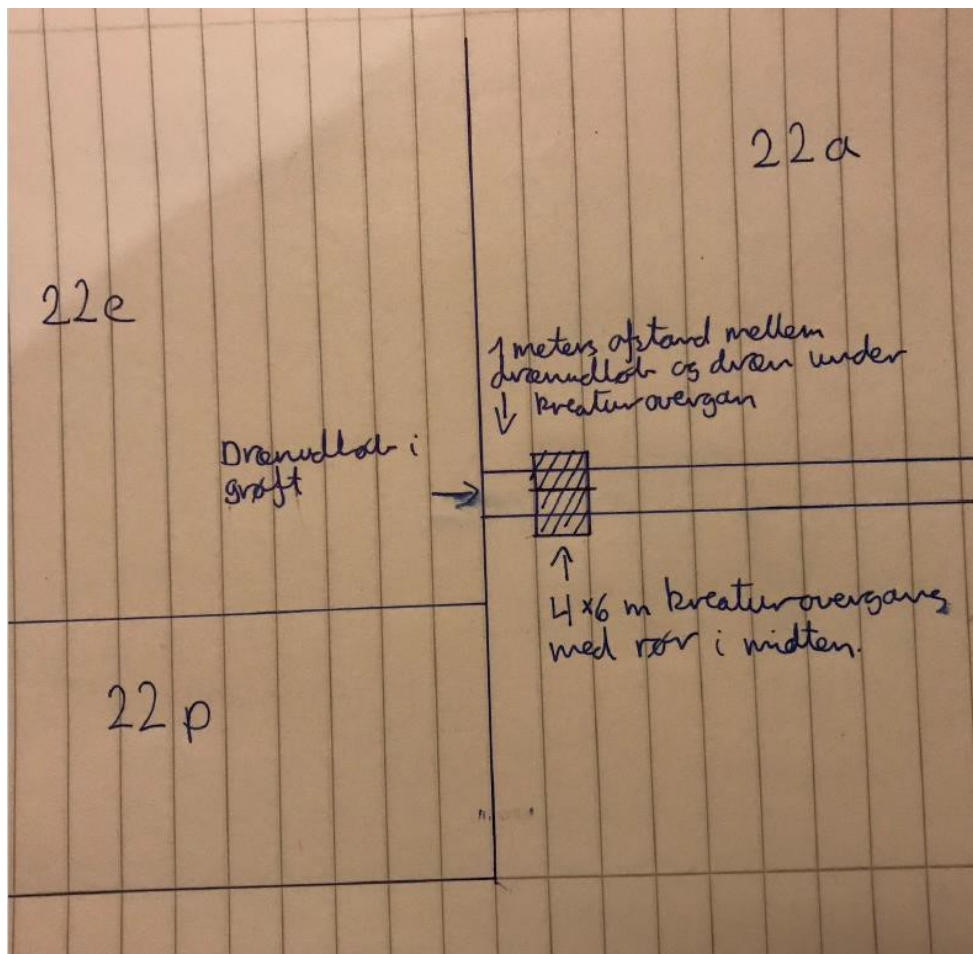 22a
22e
1 meters afstand mellem
drænudløb og dræn under
kreaturovergan
Drænudløb i
grøft
4x6 m kreaturovergang
med rør i midten.
22p